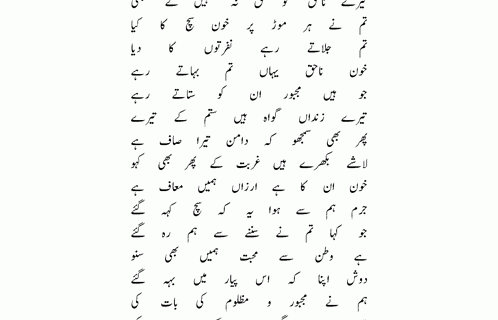 تم نے ہر موڑ پر خون سچ کا کیا
تم جلاتے رہے نفرتوں کا دیا
خون ناحق یہاں تم بہاتے رہے
جو ہیں مجبور ان کو ستاتے رہے
تیرے زنداں گواہ ہیں ستم کے تیرے
پھر بھی سمجھو کہ دامن تیرا صاف ہے
لاشے بکھرے ہیں غربت کے پھر بھی کہو
خون ان کا ہے ارزاں ہمیں معاف ہے
جرم ہم سے ہوا یہ کہ سچ کہہ گئے
جو کہا تم نے سننے سے ہم رہ گئے
ہے وطن سے محبت ہمیں بھی سنو
دوش اپنا کہ اس پیار میں بہہ گئے
ہم نے مجبور و مظلوم کی بات کی